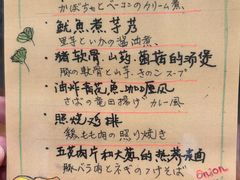 かぼちゃとベーコンのクリーム煮
魷魚煮芋艿
里芋といかの醤油煮
豬軟骨、山药、菌菇的汤煲
豚の軟骨と山芋、きのこスープ
油炸青花魚、咖喱風
さばの竜田揚げ カレー風
照焼鸡排
鶏もも肉の照り焼き
五花肉片和大葱的热荞麦麺
豚バラ肉とネギのつけそば
onion